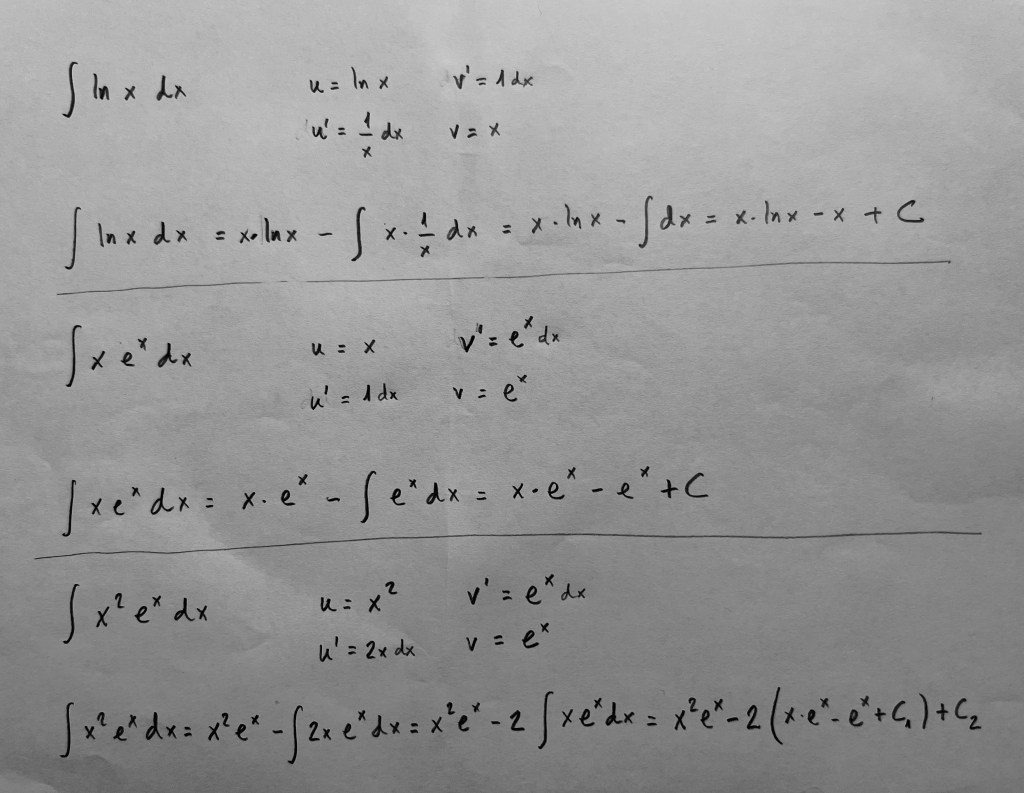 ∫ ln x dx u = ln x v' = 1 dx
u' = 1/x dx v = x
∫ ln x dx = x·ln x − ∫ x · 1/x dx = x · ln x − ∫ dx = x · ln x − x + C
∫ x eˣ dx u = x v' = eˣ dx
u' = 1 dx v = eˣ
∫ x eˣ dx = x · eˣ − ∫ eˣ dx = x · eˣ − eˣ + C
∫ x² eˣ dx u = x² v' = eˣ dx
u' = 2x dx v = eˣ
∫ x² eˣ dx = x² eˣ − ∫ 2x eˣ dx = x² eˣ − 2 ∫ x eˣ dx = x² eˣ − 2 (x · eˣ − eˣ + C₁) + C₂